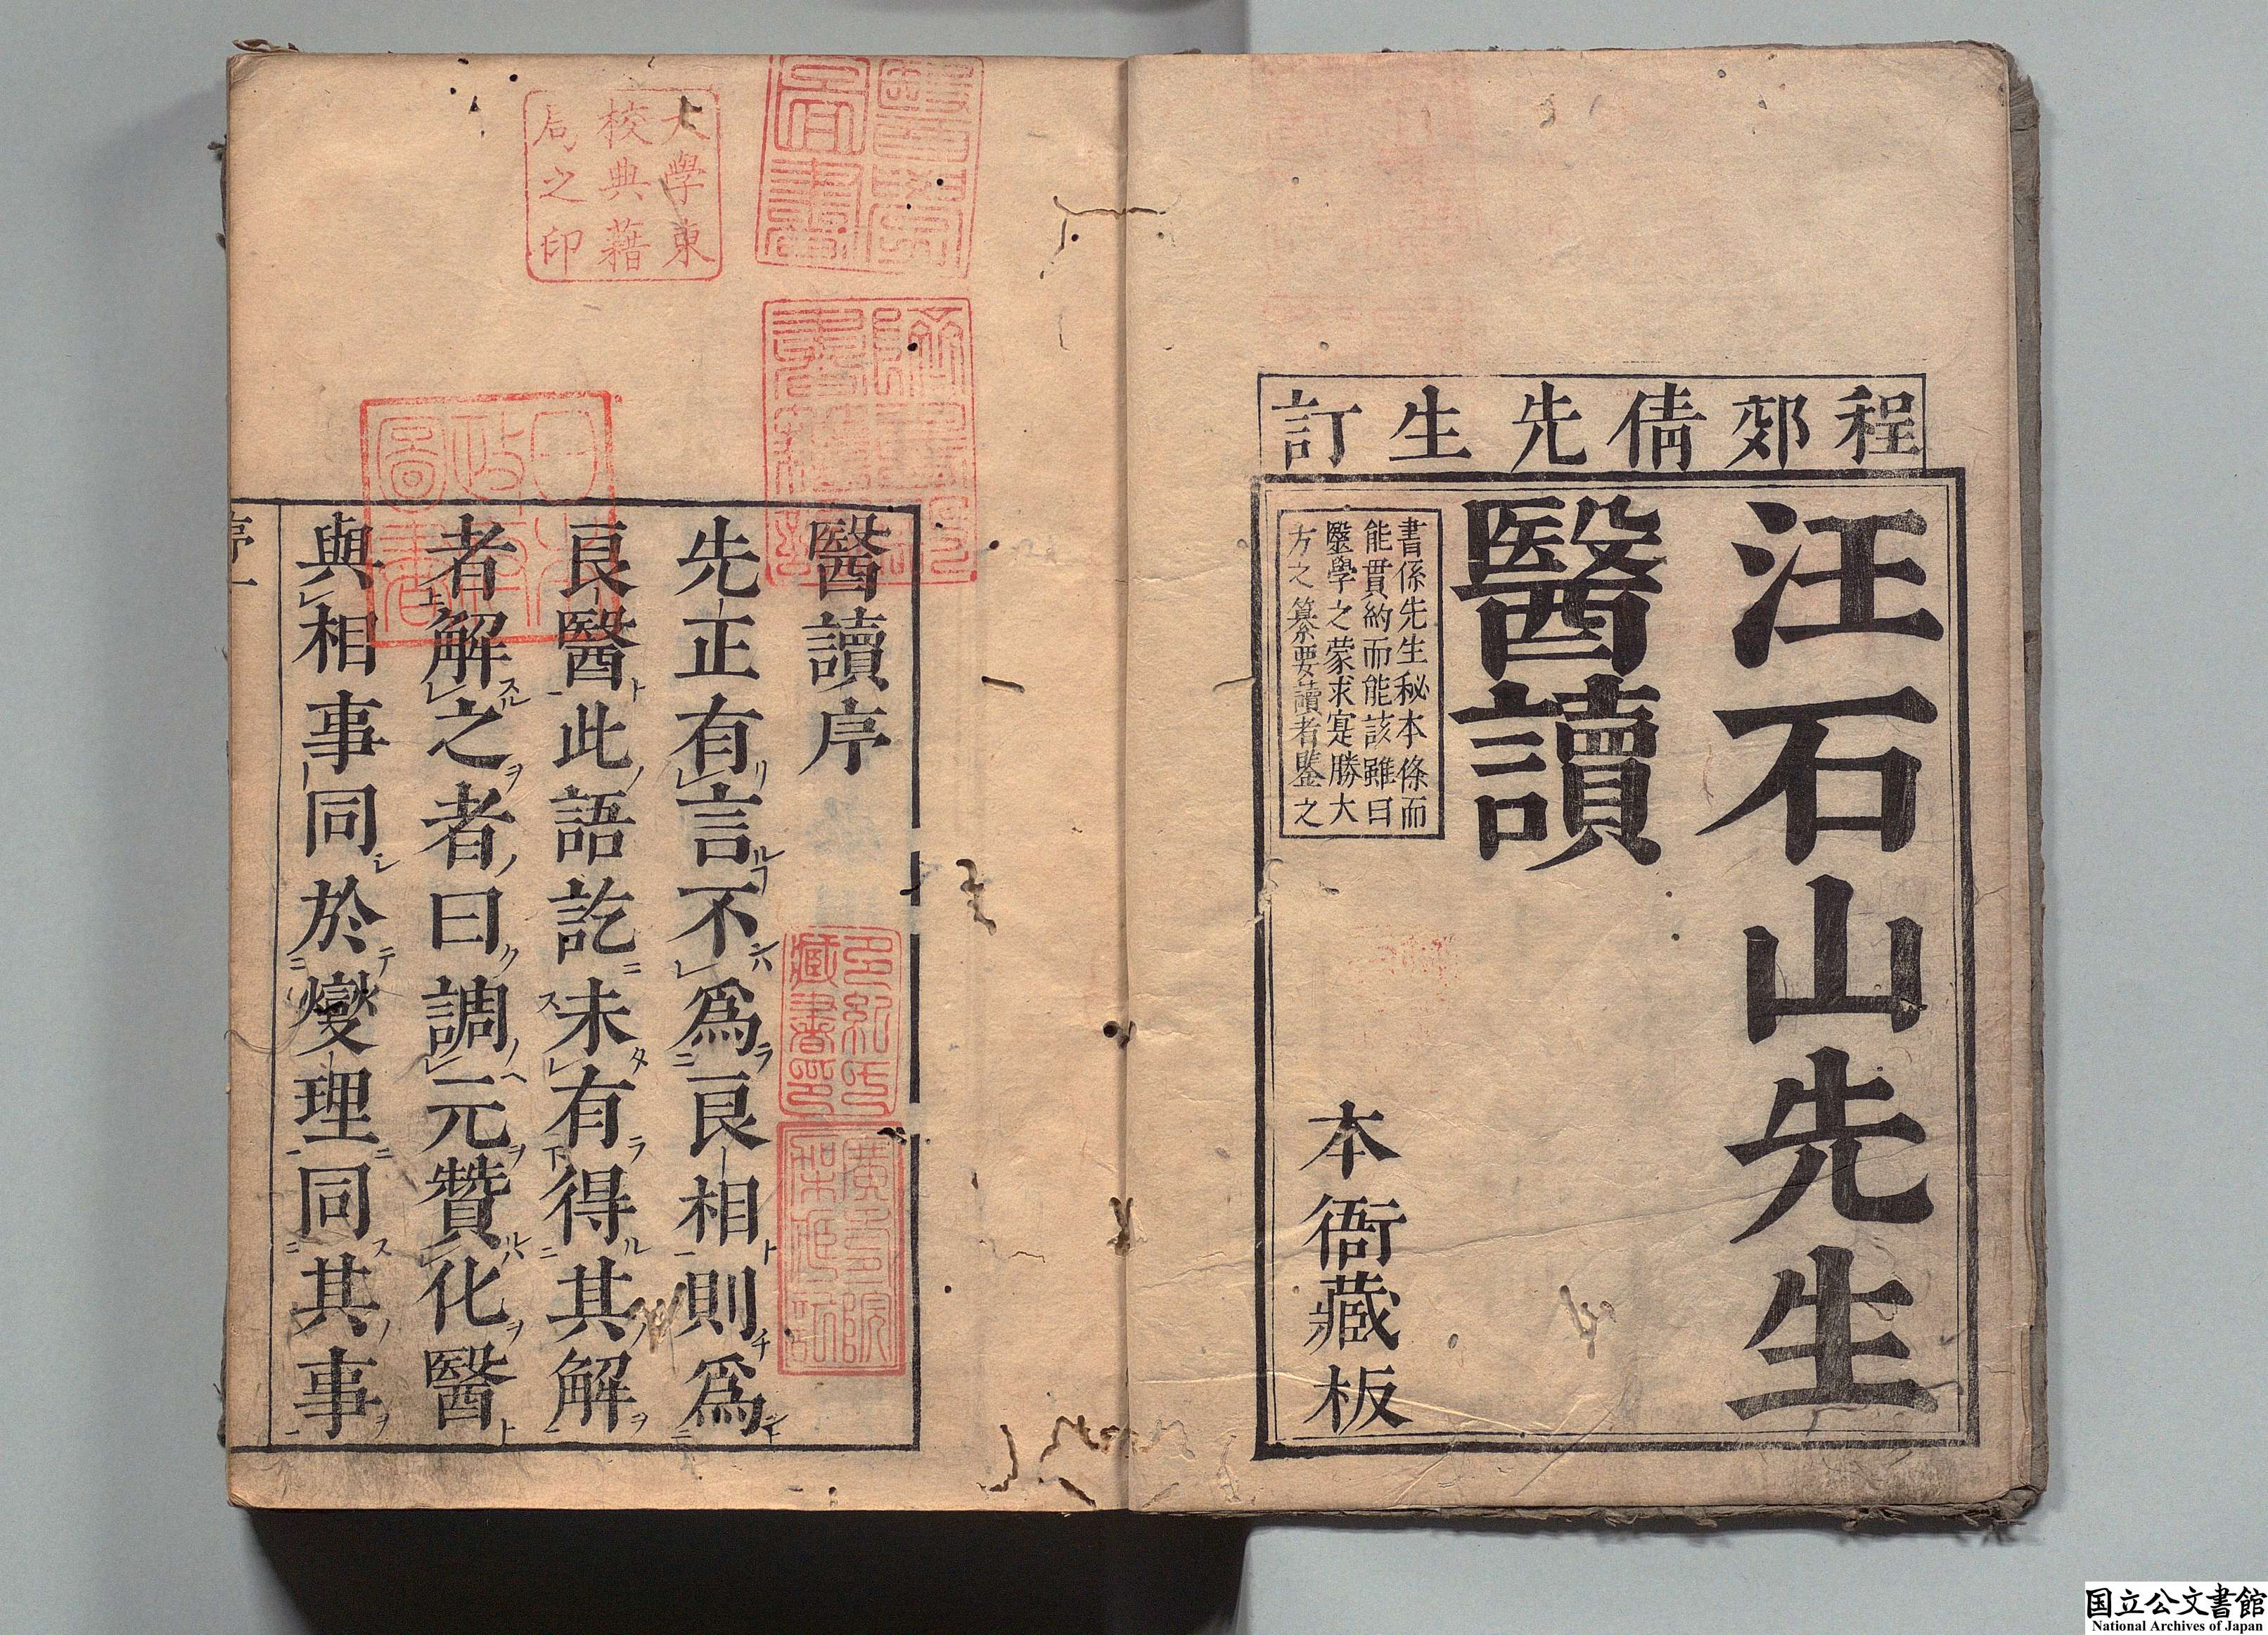 程郊倩先生訂
汪石山先生
醫讀
書係先生秘本條而
能貫約而能該雖曰
醫學之蒙求寔勝大
方之纂要讀者鑒之
本衙藏板
醫讀序
先正有言不爲良相則爲
良醫此語訖未有得其解
者解之者曰調元贊化醫
與相事同於燮理同其事
序一
醫學
圖書
躋壽館
書籍記
多紀氏
藏書印
廣壽院
架藏記
大學東
校典藉
局之印
日本
政府
圖書
国立公文書館
National Archives of Japan